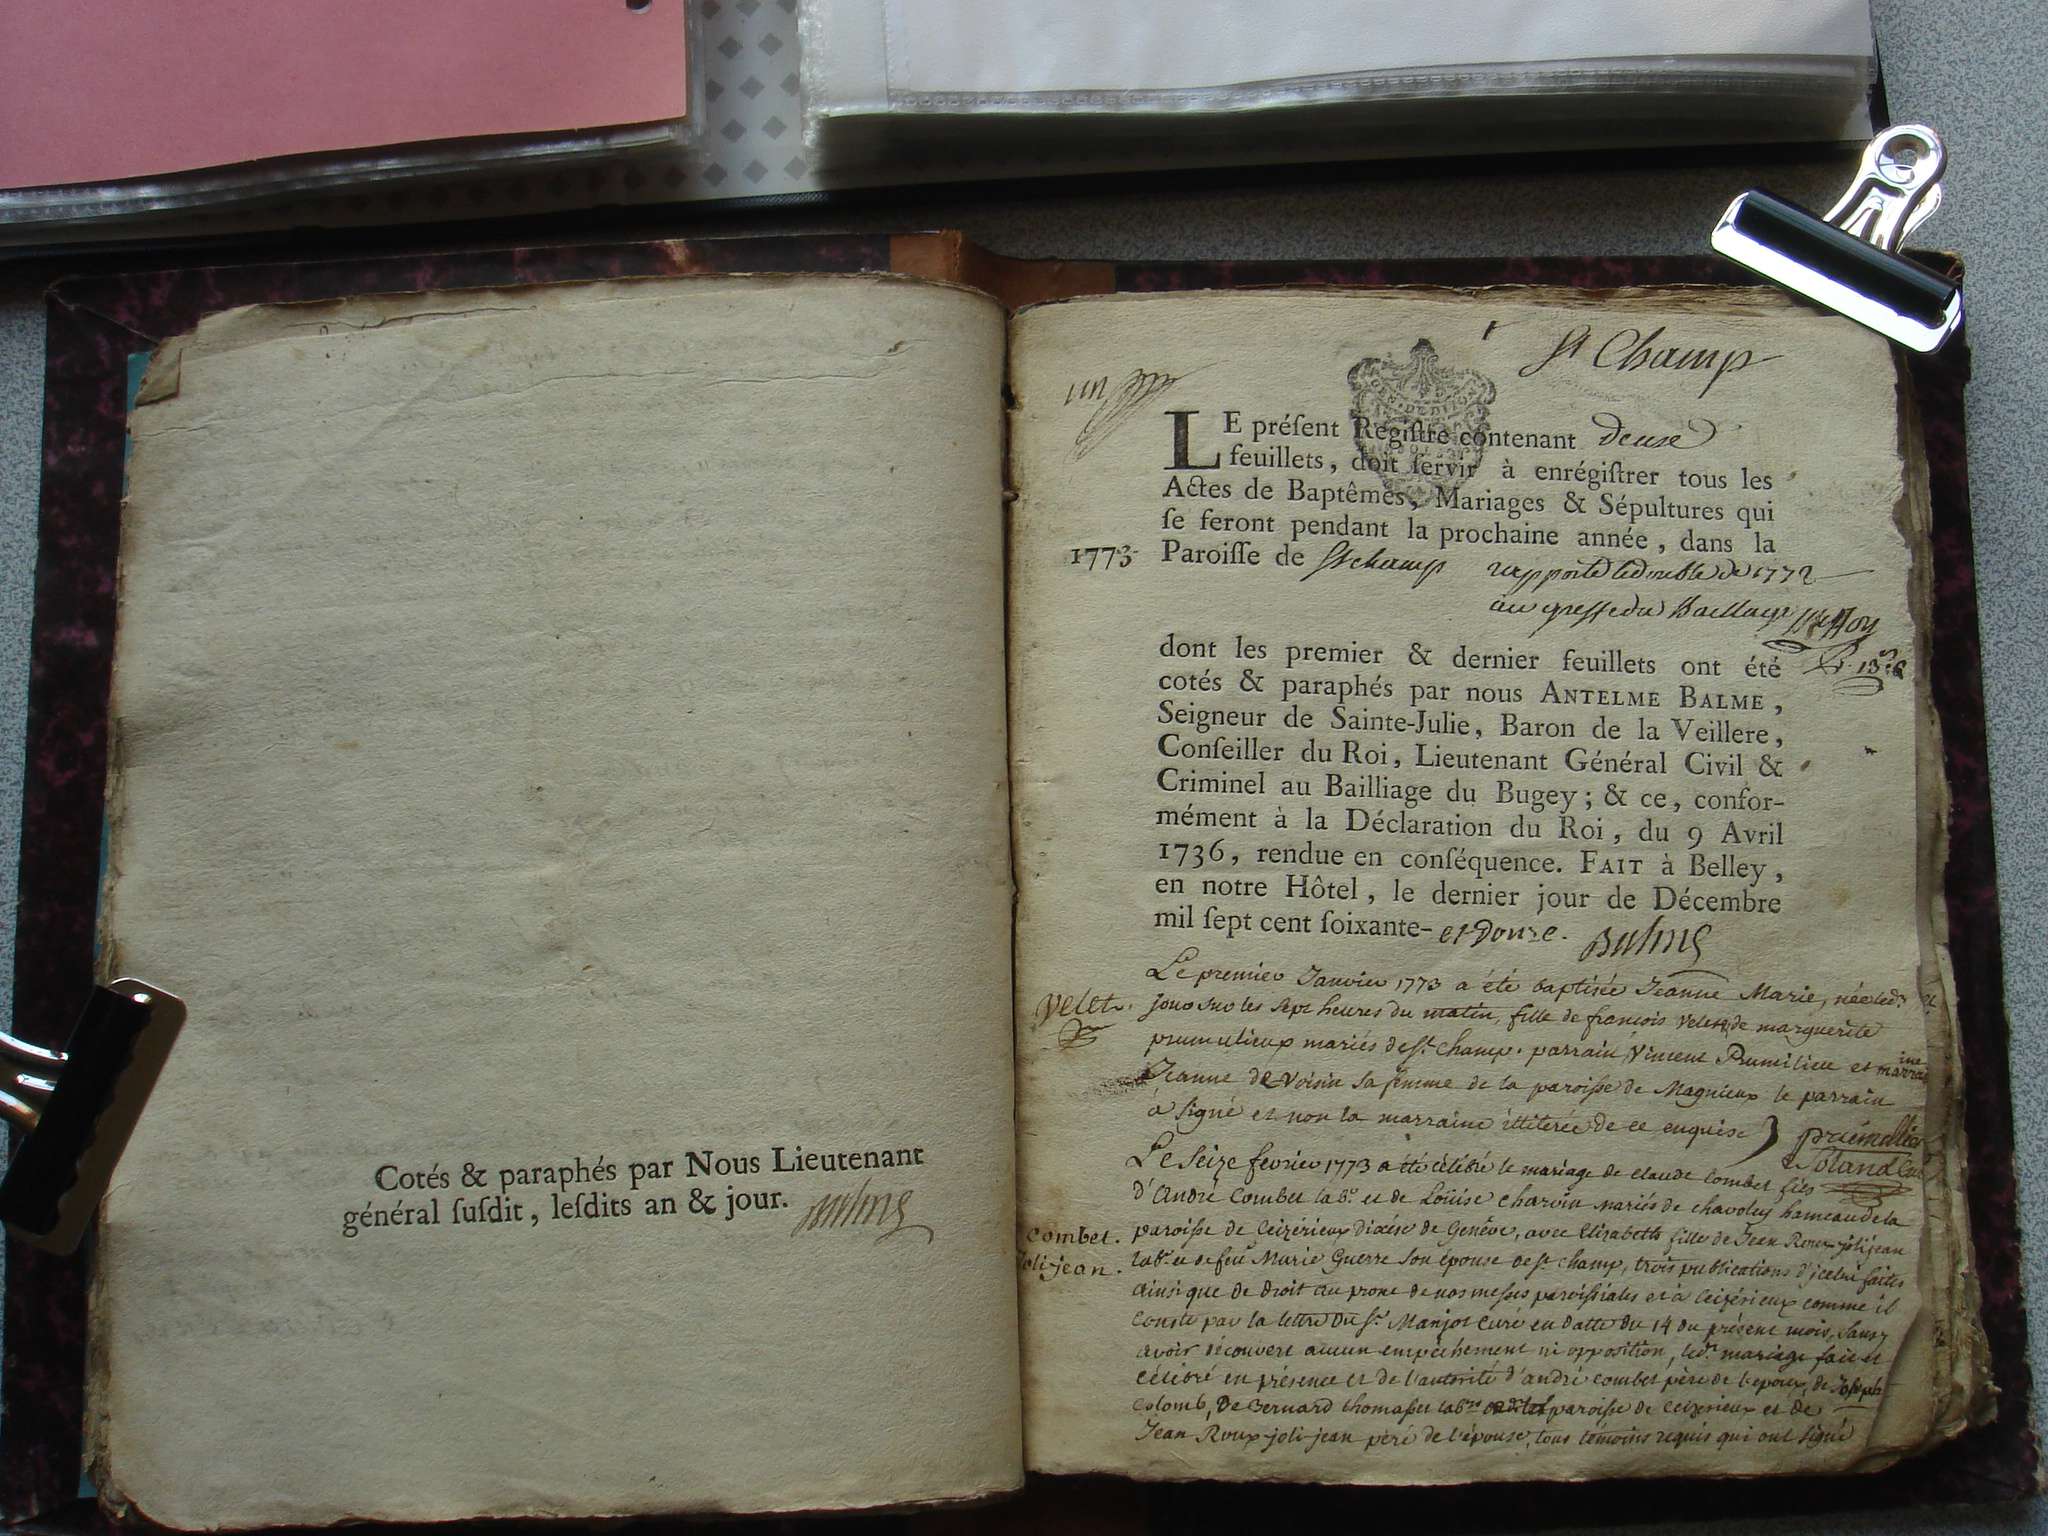 Cotés & paraphés par Nous Lieutenant
général ſuſdit, leſdits an & jour. Balme
St Champ
un
LE préſent Regiſtre contenant deuse
feuillets, doit ſervir à enrégiſtrer tous les
Actes de Baptêmes, Mariages & Sépultures qui
ſe feront pendant la prochaine année, dans la
1773 Paroiſſe de St champ rapporté le double de 1772
au greffe du Bailliage
dont les premier & dernier feuillets ont été
cotés & paraphés par nous ANTELME BALME,
Seigneur de Sainte-Julie, Baron de la Veillere,
Conſeiller du Roi, Lieutenant Général Civil &
Criminel au Bailliage du Bugey; & ce, confor-
mément à la Déclaration du Roi, du 9 Avril
1736, rendue en conſéquence. FAIT à Belley,
en notre Hôtel, le dernier jour de Décembre
mil ſept cent ſoixante- et Douze. Balme
Le premier Janvier 1773 a été baptisée Jeanne Marie, née led.
Velet. jour sur les sept heures du matin, fille de francois Velet, de marguerite
prumulieux mariés de St champ. parrain Vincent Prumilieu et marraine
Jeanne de Voisin sa femme de la paroisse de Magnieux le parrain
a signé et non la marraine illiterée de ce enquise
Le Seize fevrier 1773 a été célébré le mariage de claude Combet fils
d'André Combet lab.r et de Loüise charvin mariés de chavoley hameau de la
Combet. paroisse de Ceizérieux Diocèse de Genève, avec Elizabeth fille de Jean Roux-joli jean
joli-jean. lab.r et de feüe Marie Guerre son épouse de St champ, trois publications d'icelui faites
ainsi que de droit au prone de nos messes paroissiales et a Ceizérieux comme il
conste par la lettre du Sr. Manjot curé en datte du 14 du présent mois, sans
avoir découvert aucun empêchement ni opposition, led. mariage fait et
célébré en présence et de l'autorité d'andré combet père de l'epoux, de Joseph
Colomb, De Bernard thomasset lab.rs paroisse de Ceizerieux et de
Jean Roux-joli-jean père de l'épouse, tous témoins requis qui ont signé